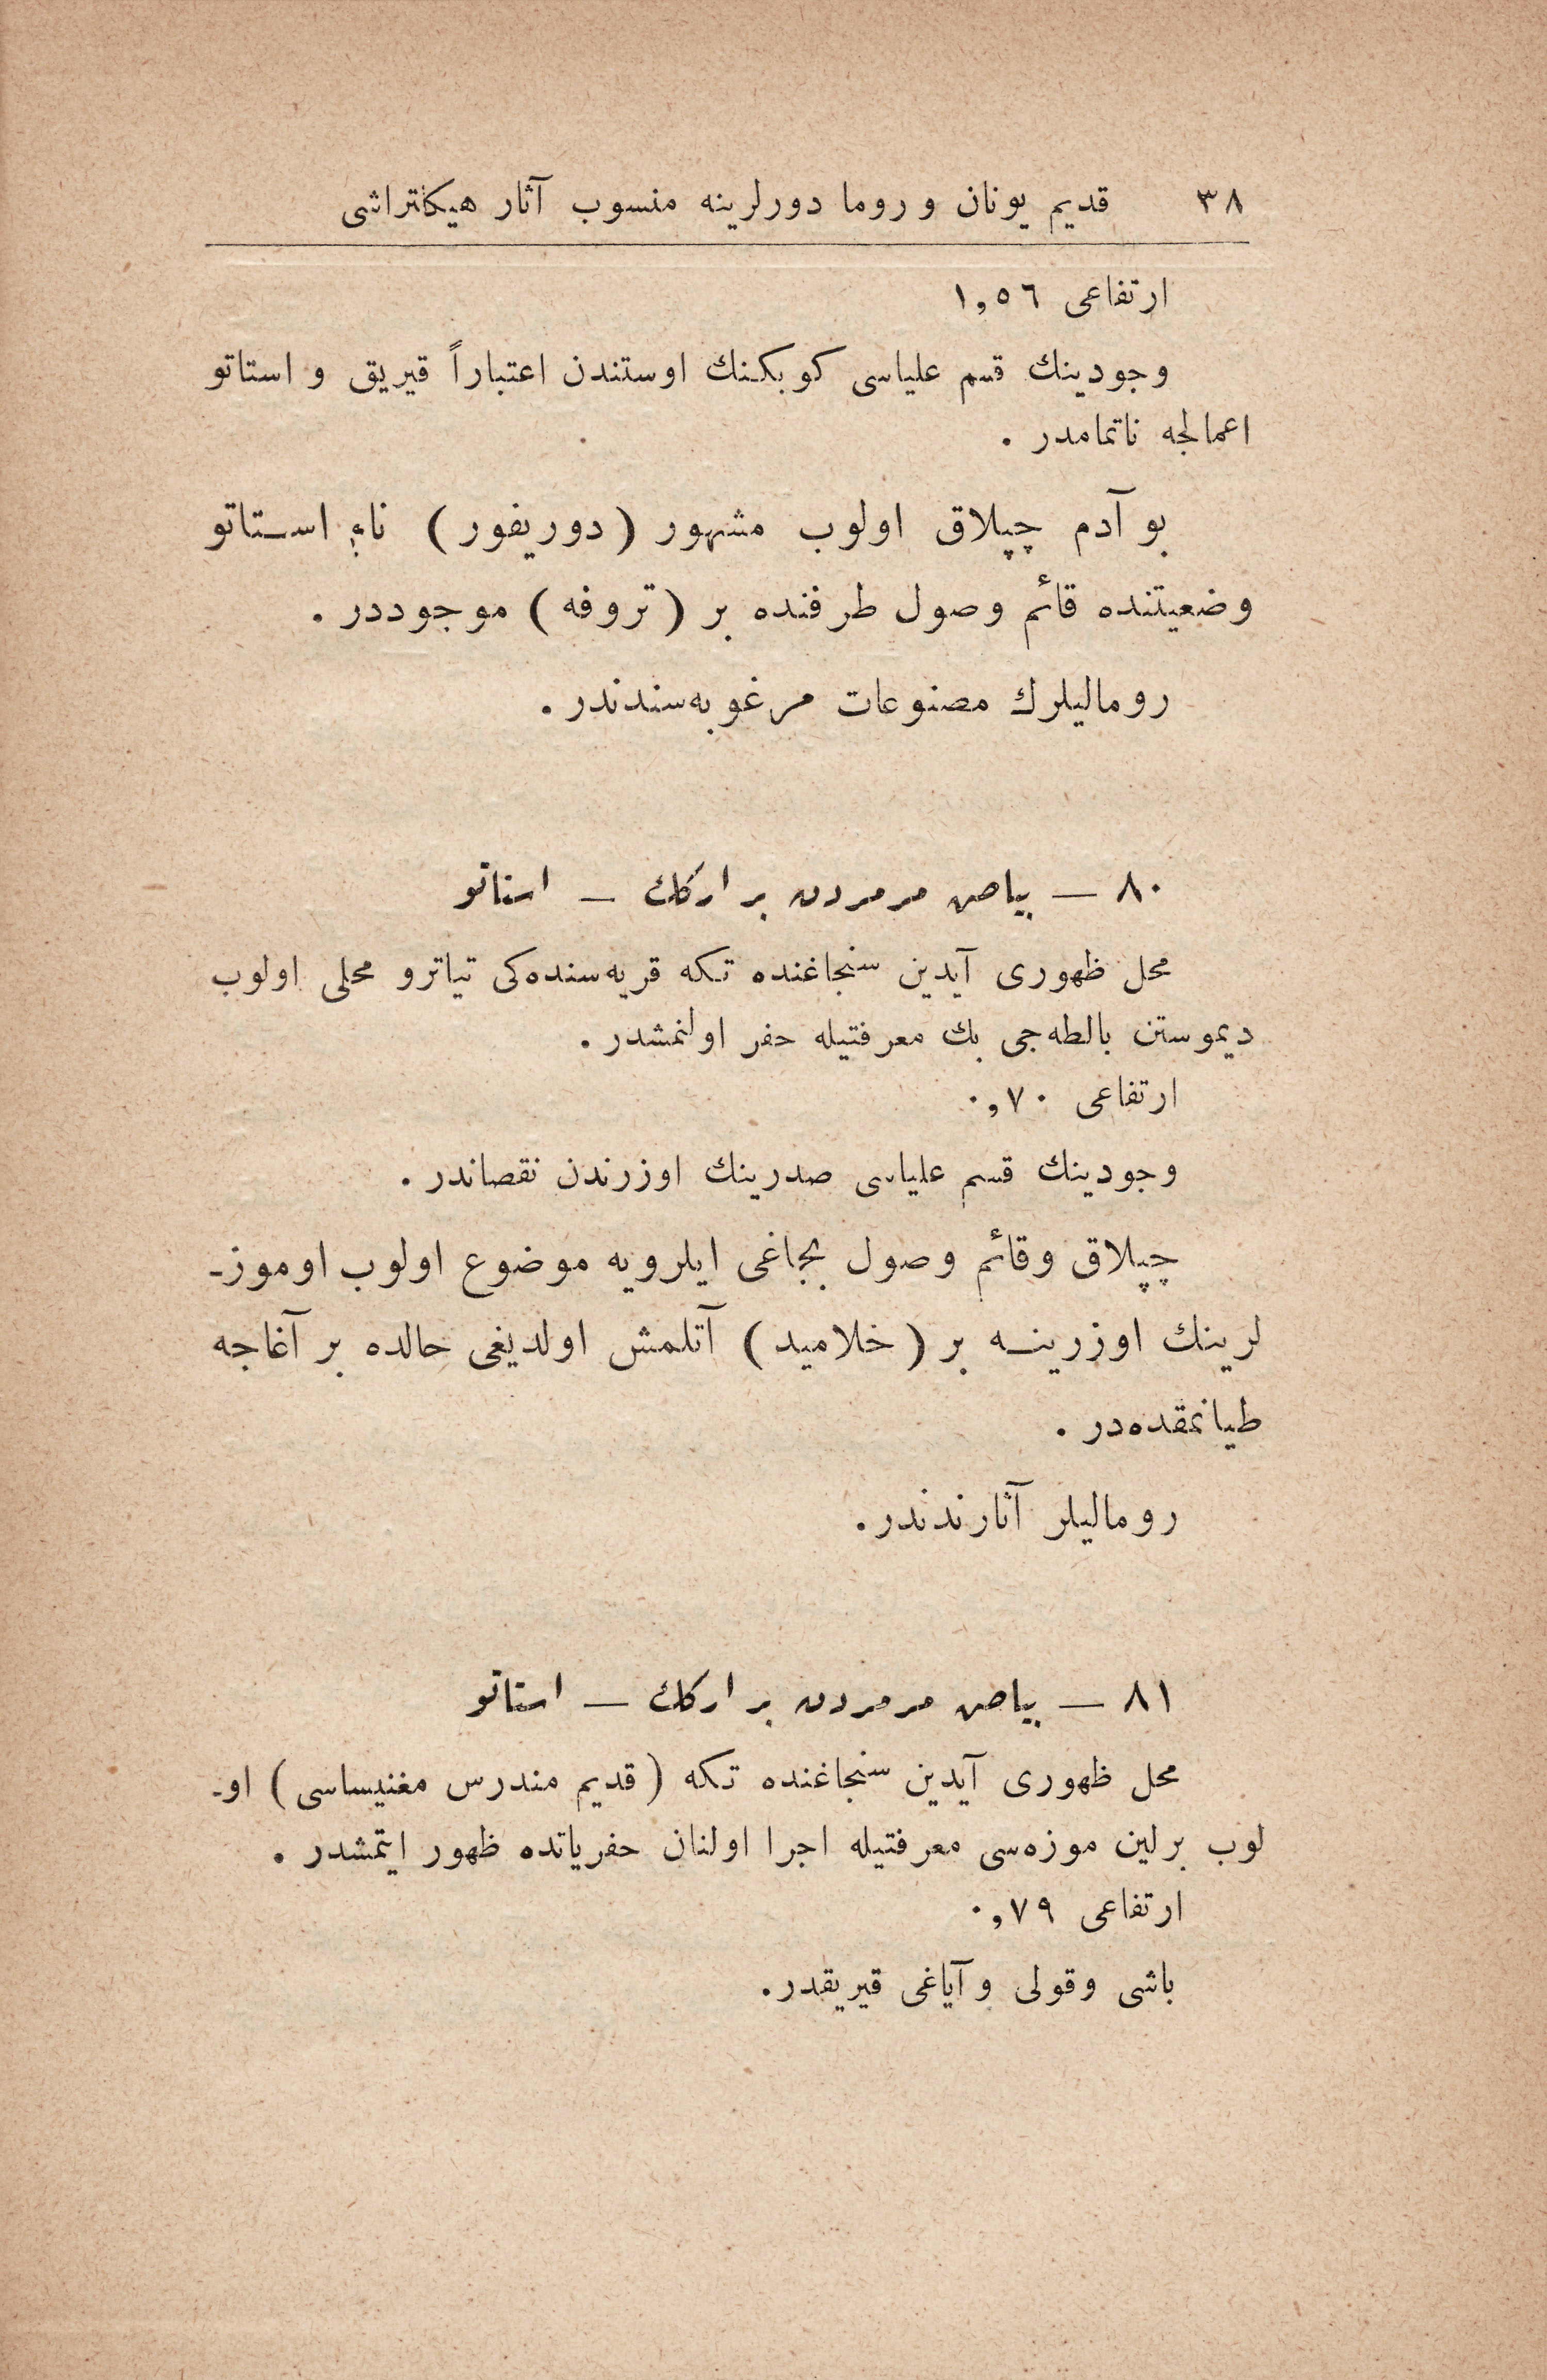 ٣٨ قديم يونان و روما دورلرينه منسوب آثار هيكلتراشى
ارتفاعى ١,٥٦
وجودينك قسم علياسى كوبكنك اوستندن اعتباراً قيريق و استاتو
اعمالجه ناتمامدر .
بو آدم چپلاق اولوب مشهور (دوريفور) نام استاتو
وضعيتنده قائم وصول طرفنده بر (تروفه) موجوددر .
روماليلرك مصنوعات مرغوبه‌سندندر .
٨٠ — بياض مرمردن بر اركك — استاتو
محل ظهورى آيدين سنجاغنده تكه قريه‌سنده‌كى تياترو محلى اولوب
ديموستن بالطه‌جى بك معرفتيله حفر اولنمشدر .
ارتفاعى ٠,٧٠
وجودينك قسم علياسى صدرينك اوزرندن نقصاندر .
چپلاق وقائم وصول بجاغى ايلرويه موضوع اولوب اوموز-
لرينك اوزرينه بر (خلاميد) آتلمش اولديغى حالده بر آغاجه
طيانمقده‌در .
روماليلر آثارندندر.
٨١ — بياض مرمردن بر اركك — استاتو
محل ظهورى آيدين سنجاغنده تكه (قديم مندرس مغنيساسى) او-
لوب برلين موزه‌سى معرفتيله اجرا اولنان حفرياتده ظهور ايتمشدر .
ارتفاعى ٠,٧٩
باشى وقولى و آياغى قيريقدر.